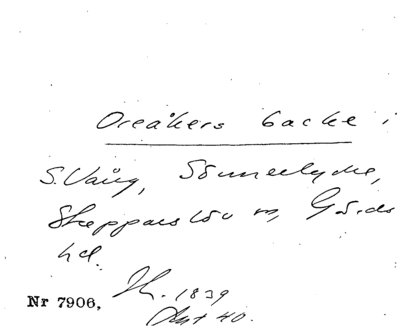 Oreåkers backe i
S. Vång, Sönnerlycke,
Skepparslöv sn, Gärds
hd.
Nr 7906, Th. 1839
Avt 40.